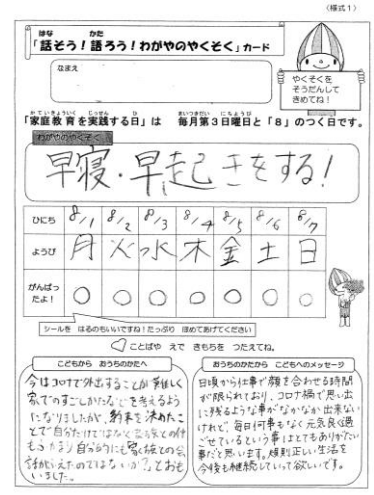 （様式１）
「話そう！語ろう！わがやのやくそく」カード
なまえ
やくそくを
そうだんして
きめてね！
「家庭教育を実践する日」は 毎月第３日曜日と「８」のつく日です。
わがやのやくそく
早寝・早起きをする！
ひにち 8/1 8/2 8/3 8/4 8/5 8/6 8/7
ようび 月 火 水 木 金 土 日
がんばっ
たよ！ ○ ○ ○ ○ ○ ○ ○
シールを はるのもいいですね！たっぷり ほめてあげてください
ことばや えで きもちを つたえてね。
こどもから おうちのかたへ
今はコロナで外出することが難しく
家でのすごしかたなどを考えるよう
になりましたが、約束を決めたこ
とで自分だけではなく家族との
自分にも家族との会
話が
いました。
おうちのかたから こどもへのメッセージ
日頃から仕事で顔を合わせる時間
が限られており、コロナ禍で思い出
に残るような事がなかなか出来ない
けれど、毎日何事もなく元気良く過
ごせているという事はとてもありがたい
事だと思います。規則正しい生活を
今後も継続していって欲しいです。